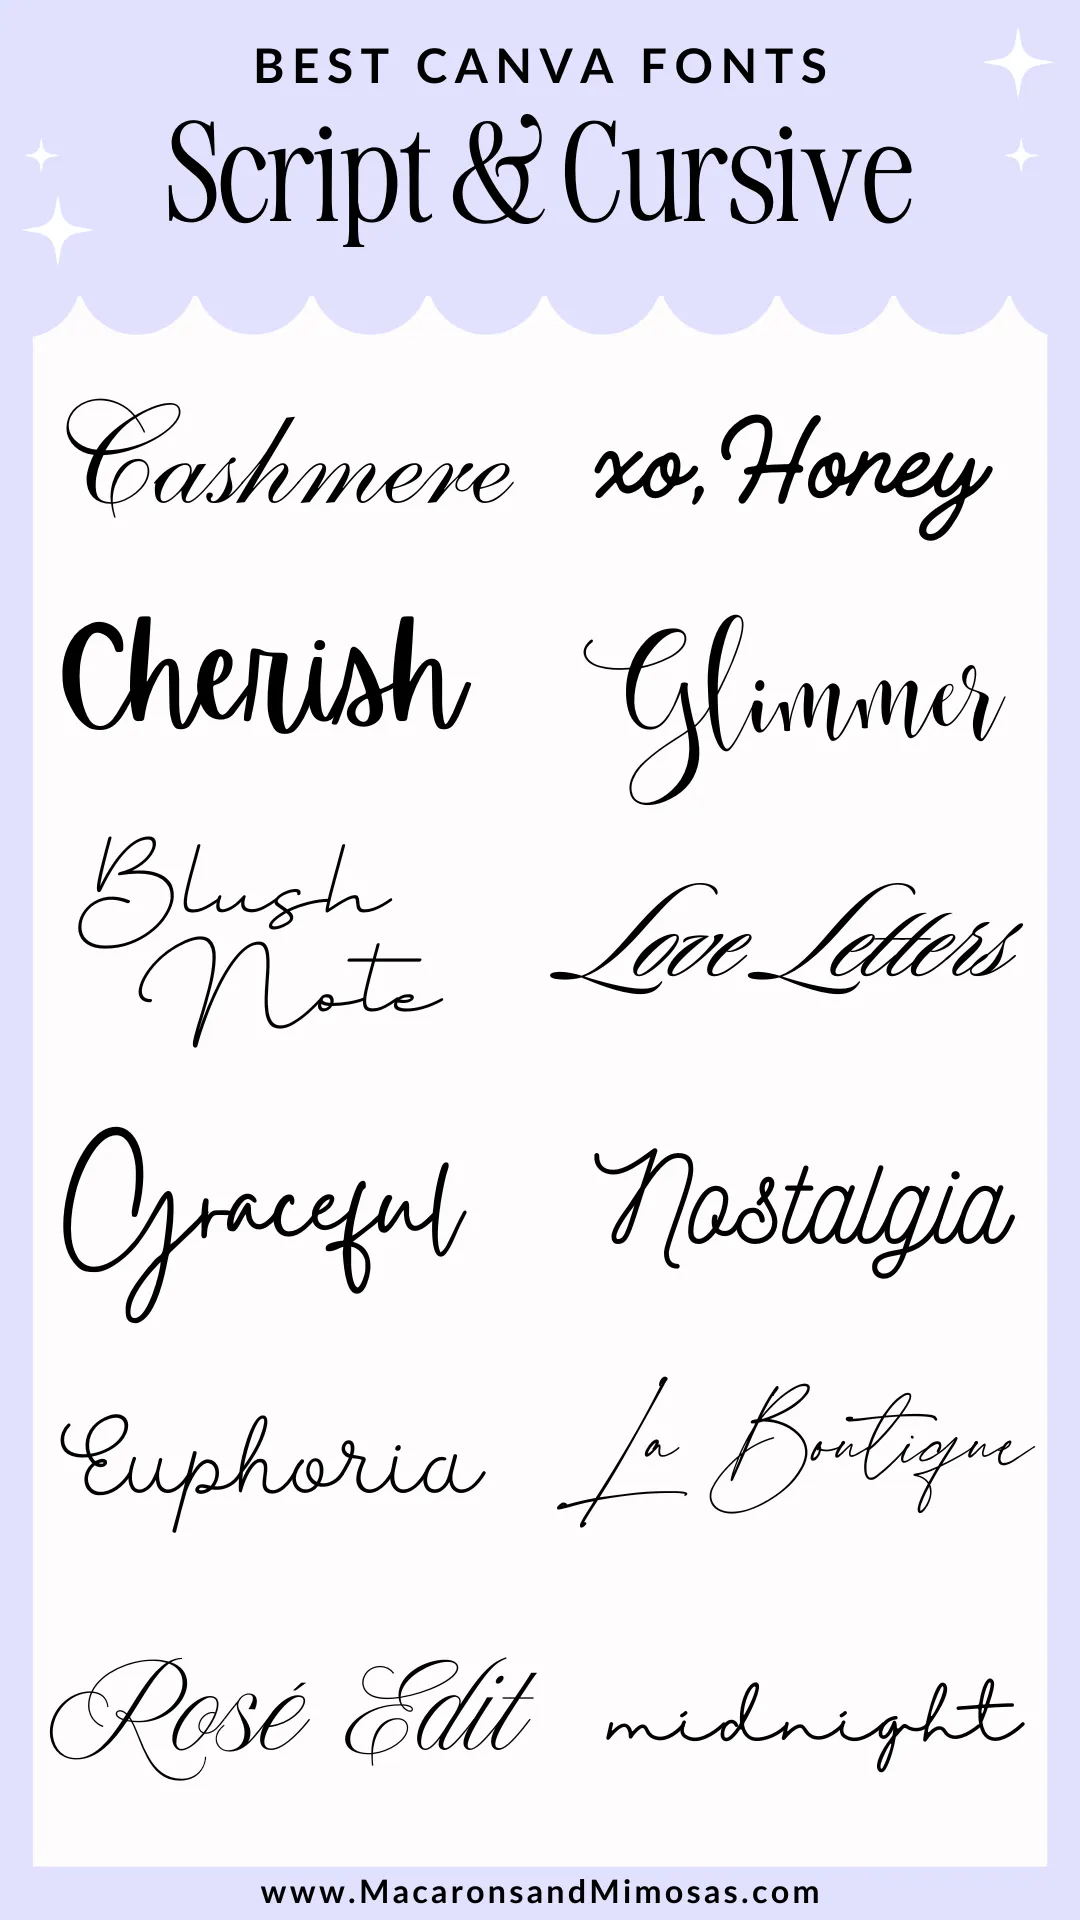 BEST CANVA FONTS
Script & Cursive
Cashmere
xo, Honey
Cherish
Glimmer
Blush
Note
Love Letters
Graceful
Nostalgia
Euphoria
La Boutique
Rosé Edit
midnight
www.MacaronsandMimosas.com